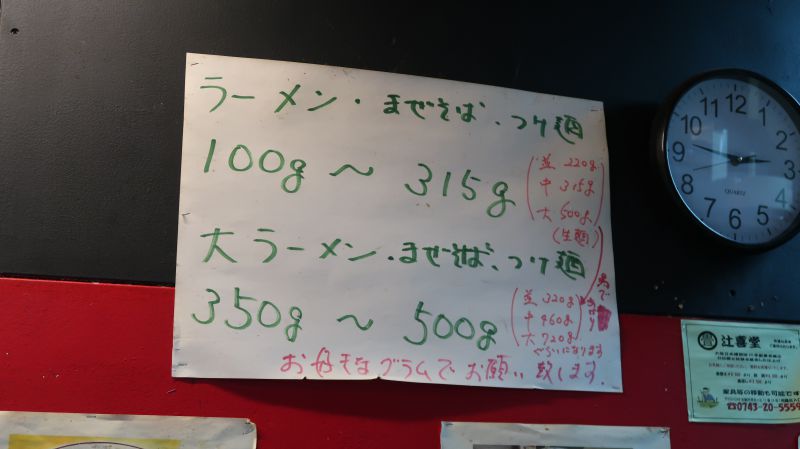 ラーメン・まぜそば、つけ麺
100g～315g
(並 220g
中 315g
大 500g
(生麺)
大ラーメン・まぜそば、つけ麺
350g～500g
(並 320g
中 460g
大 720g
ぐらいになります
お好きなグラムでお願い致します。
12
11
1
10
2
9
3
8
4
7
5
6
QUARTZ
辻喜堂
家具等の移動も可能です
0743-20-5559